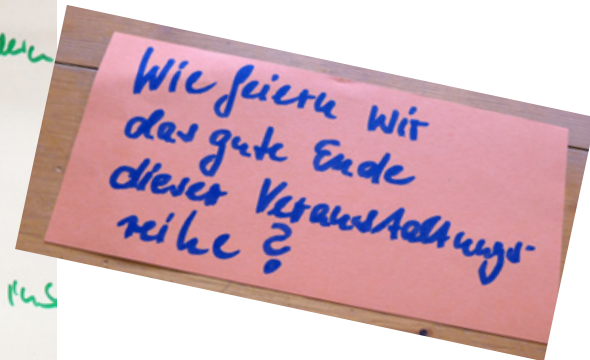 Wie feiern wir
das gute Ende
dieser Veranstaltungs-
reihe?